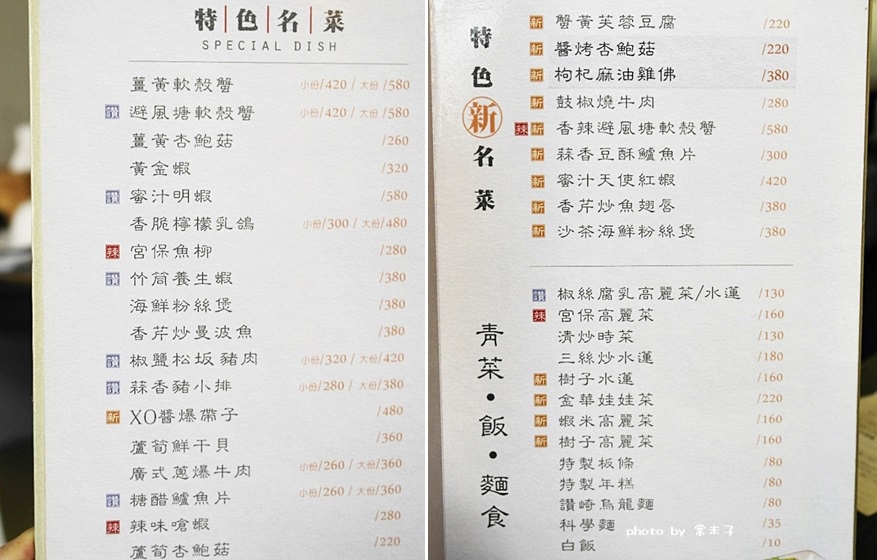 特色名菜
SPECIAL DISH
薑黃軟殼蟹 小份/420 / 大份/580
讚 避風塘軟殼蟹 小份/420 / 大份/580
薑黃杏鮑菇 /260
黃金蝦 /320
讚 蜜汁明蝦 /580
香脆檸檬乳鴿 小份/300 / 大份/480
辣 宮保魚柳 /280
讚 竹筒養生蝦 /380
海鮮粉絲煲 /380
香芹炒曼波魚 /380
讚 椒鹽松坂豬肉 小份/320 / 大份/420
讚 蒜香豬小排 小份/280 / 大份/380
新 XO醬爆帶子 /480
蘆筍鮮干貝 /360
廣式蔥爆牛肉 小份/260 / 大份/360
讚 糖醋鱸魚片 小份/260 / 大份/360
辣 辣味嗆蝦 /280
蘆筍杏鮑菇 /220
特色新名菜
新 蟹黃芙蓉豆腐 /220
新 醬烤杏鮑菇 /220
新 枸杞麻油雞佛 /380
新 鼓椒燒牛肉 /280
辣 新 香辣避風塘軟殼蟹 /580
新 蒜香豆酥鱸魚片 /300
新 蜜汁天使紅蝦 /420
新 香芹炒魚翅唇 /380
新 沙茶海鮮粉絲煲 /380
青菜•飯•麵食
讚 椒絲腐乳高麗菜/水蓮 /130
辣 宮保高麗菜 /160
清炒時菜 /130
三絲炒水蓮 /180
新 樹子水蓮 /160
新 金華娃娃菜 /220
新 蝦米高麗菜 /160
新 樹子高麗菜 /160
特製板條 /80
特製年糕 /80
讚崎烏龍麵 /80
科學麵 /35
白飯 /10
photo by 棠主子